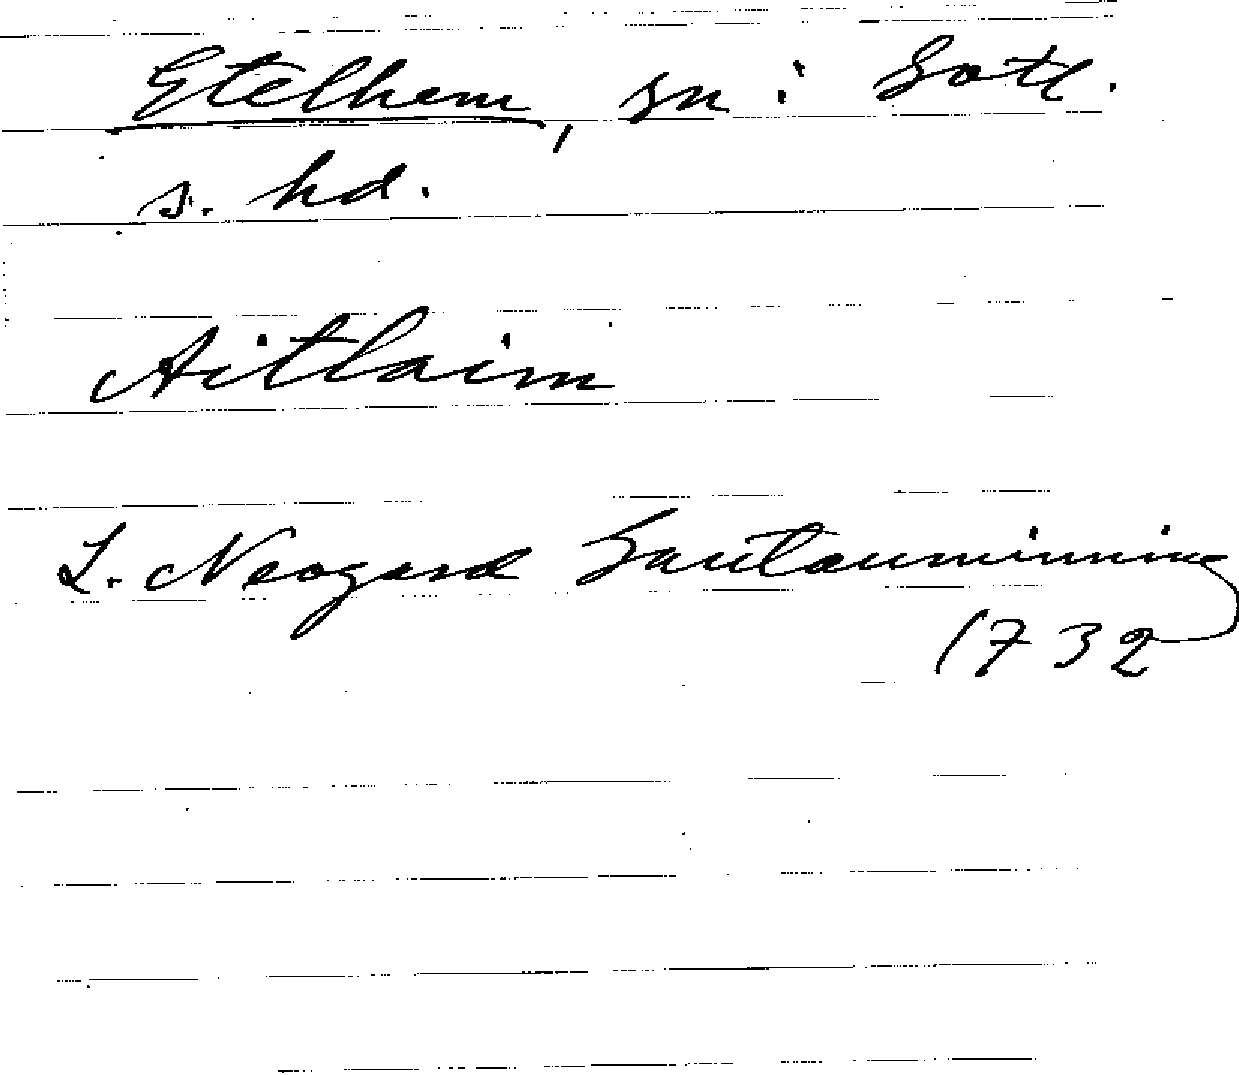 Etelhem, sn i Gotl.
s. hd.
Aitlaim
L. Neogard Gautauminning
1732